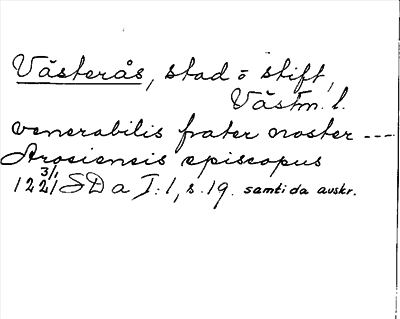 Västerås, stad o stift,
Västm. l.
venerabilis frater noster ---
Arosiensis episcopus
3/1 1221 SD a I:1, s. 19. samtida avskr.